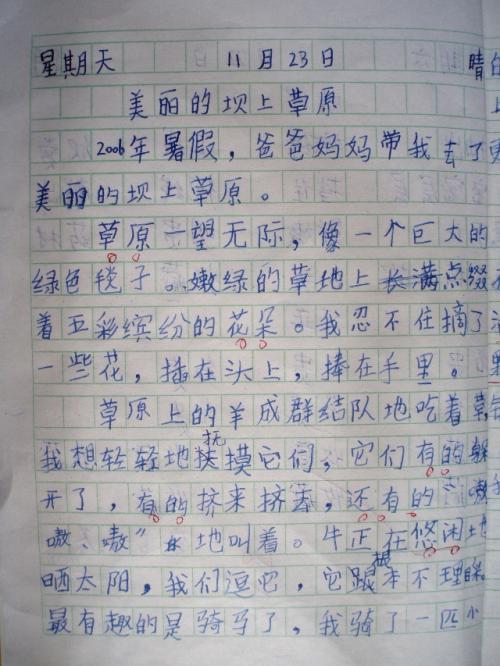 星期天 11月23日 晴
美丽的坝上草原
2006年暑假，爸爸妈妈带我去了
美丽的坝上草原。
草原一望无际，像一个巨大的
绿色毯子。嫩绿的草地上长满点缀
着五彩缤纷的花朵。我忍不住摘了
一些花，插在头上，捧在手里。
草原上的羊成群结队地吃着草
抚
我想轻轻地摸它们，它们有的躲
开了，有的挤来挤去，还有的
嗷、嗷”地叫着。牛正在悠闲地
根
晒太阳，我们逗它，它跟本不理
最有趣的是骑马了，我骑了一匹小